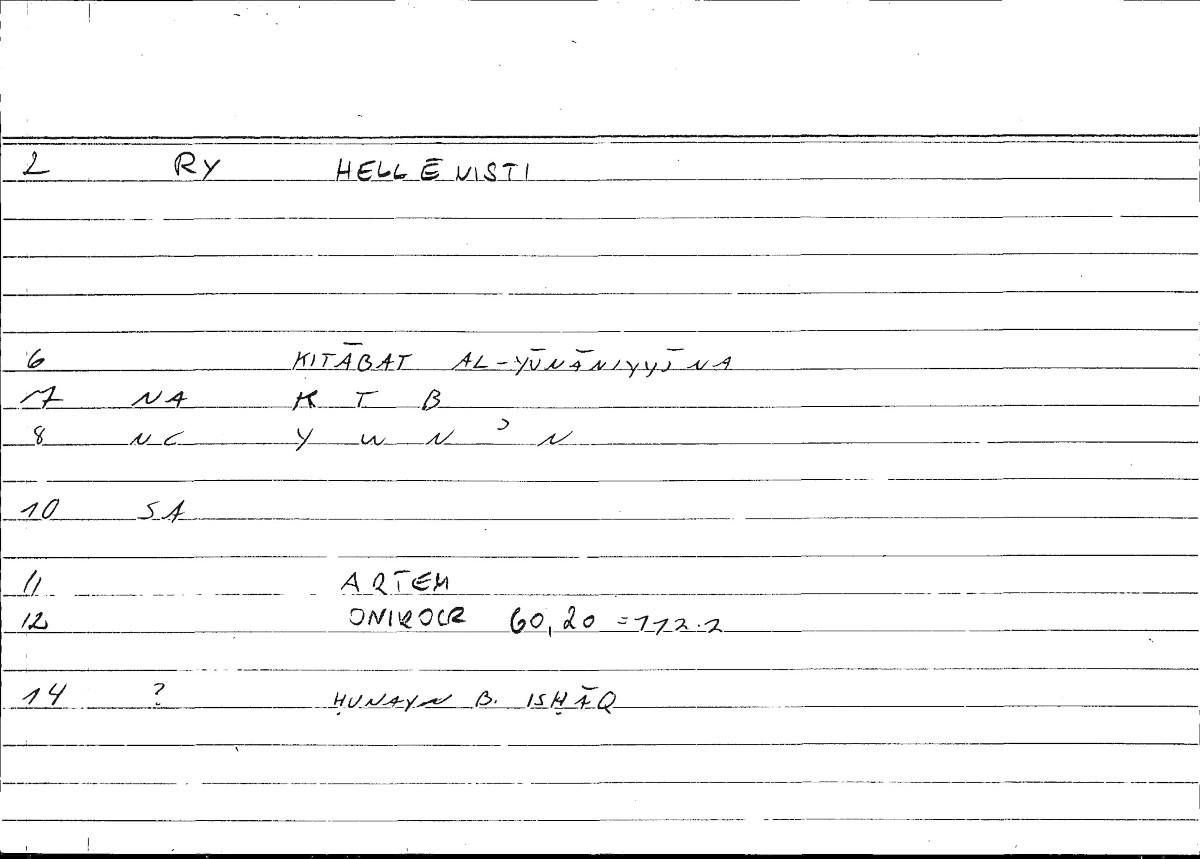 2 RY HELLĒNISTI
6 KITĀBAT AL-YŪNĀNIYYĪNA
7 NA K T B
8 NC Y W N ʾ N
10 SA
11 ARTEM
12 ONIROCR 60,20 = 112.2
14 ? ḤUNAYN B. ISḤĀQ